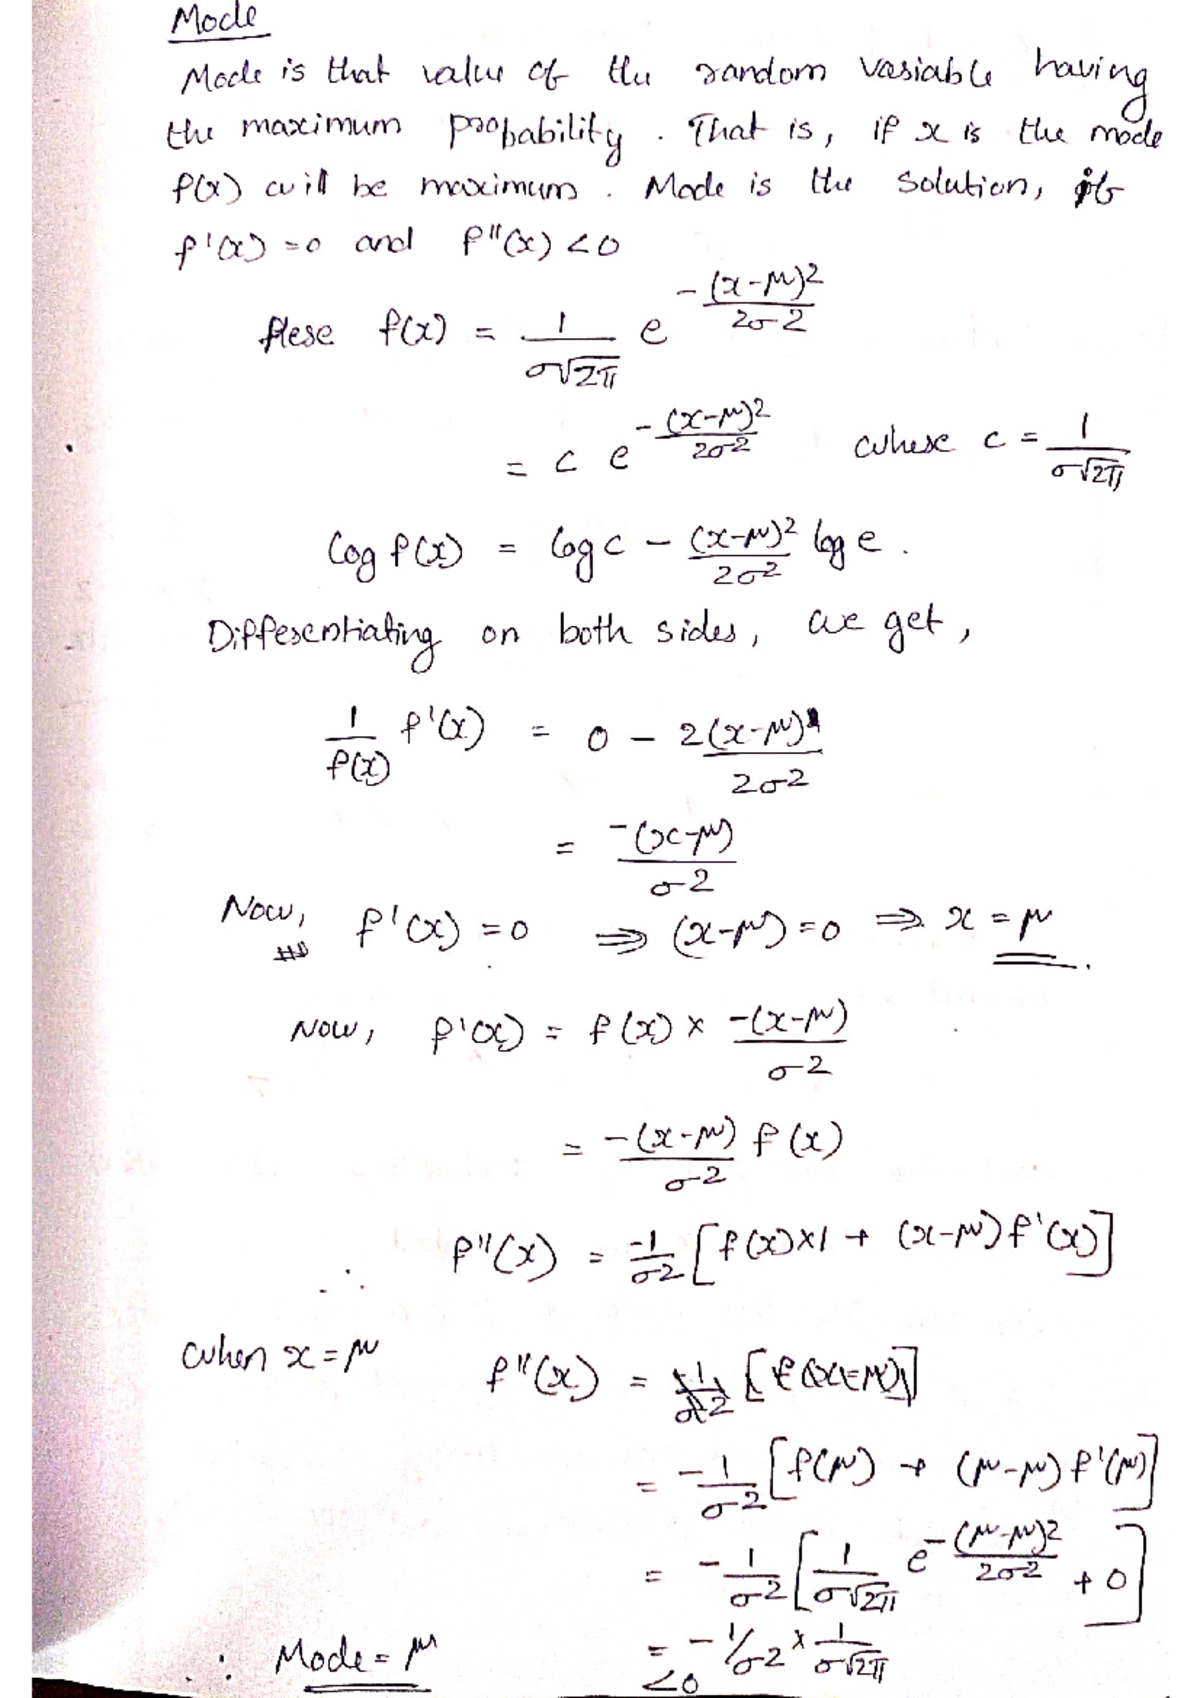 Mode
Mode is that value of the random variable having
the maximum probability. That is, if x is the mode
f(x) will be maximum. Mode is the solution, if
f'(x) = 0 and f''(x) < 0
Here f(x) = 1/(σ√2π) e^{-(x-μ)²/2σ²}
= c e^{-(x-μ)²/2σ²} where c = 1/(σ√2π)
log f(x) = log c - (x-μ)²/2σ² log e.
Differentiating on both sides, we get,
1/f(x) f'(x) = 0 - 2(x-μ)/2σ²
= -(x-μ)/σ²
Now, f'(x) = 0 ⇒ (x-μ) = 0 ⇒ x = μ
Now, f'(x) = f(x) × -(x-μ)/σ²
= -(x-μ)/σ² f(x)
∴ f''(x) = -1/σ² [f(x)×1 + (x-μ) f'(x)]
when x = μ f''(x) =
= -1/σ² [f(μ) + (μ-μ) f'(μ)]
= -1/σ² [1/(σ√2π) e^{-(μ-μ)²/2σ²} + 0]
= -1/σ² × 1/(σ√2π)
∴ Mode = μ < 0